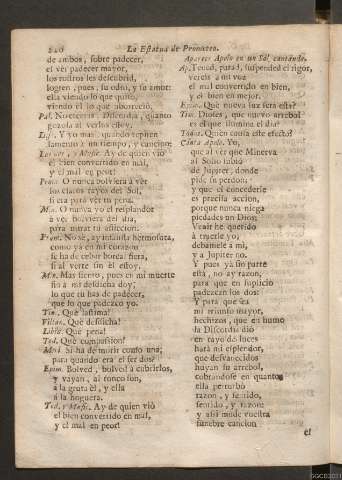 220 La Estatua de Prometeo.
de ambos, sobre padecer,
el ver padecer mayor,
los rostros les descubrid,
logren, pues, su odio, y su amor:
ella viendo lo que quiso,
viendo el lo que aborreció,
Pal. No eterna. Discordia, quanto
gozosa al verlos estoy.
Disc. Y yo mas, quando repiten
lamento à un tiempo, y cancion:
Los dos, y Music. Ay de quien vió
el bien convertido en mal,
y el mal en peor!
Prom. O nunca bolviera à ver
los claros rayos del Sol,
si era para ver tu pena.
Min. O nunca yo el resplandor
à ver bolviera del dia,
para mirar tu afliccion.
Prom. No sè, ay infausta hermosura,
como ya en mi corazon
se ha de cebar boreal fiera,
si al verte sin èl estoy.
Min. Mas siento, pues en mi muerte
fio à mi desdicha doy;
lo que tu has de padecer,
que lo que padezco yo.
Tim. Què lastima!
Villan. Què desdicha!
Libia. Què pena!
Tod. Què compassion!
Mús. Si ha de morir como una;
para quando era el ser dos?
Epim. Bolved, bolved à cubrirlos,
y vayan, al ronco son,
à la gruta èl, y ella
à la hoguera.
Tod. y Music. Ay de quien viò
el bien convertido en mal,
y el mal en peor!
Aparece Apolo en un Sol, cantando.
Ap. Tened, parad, suspended el rigor,
vereis à mi voz
el mal convertido en bien,
y el bien en mejor.
Epim. Què nueva luz serà esta?
Tim. Dioses, que nuevo arrebol
es el que ilumina el dia?
Todos. Quien causa este efecto?
Canta Apolo. Yo,
que al ver que Minerva
al Solio subiò
de Jupiter, donde
pide su perdon:
y que el concederle
es precisa accion,
porque nunca niega
piedades un Dios:
Venir he querido
à traerle yo,
debamele à mi,
y à Jupiter no.
Y pues yà sin parte
està, no ay razon,
para que en suplicio
padezcan los dos:
Y para que sea
mi triunfo mayor,
hechizos, que en humo
la Discordia diò
en rayo de luces
harà mi esplendor,
que desvanecidos
huyan su arrebol,
cobrandose en quantos
ella perturbò
razon, y sentido,
sentido, y razon:
y assi mude vuestra
funebre cancion
el